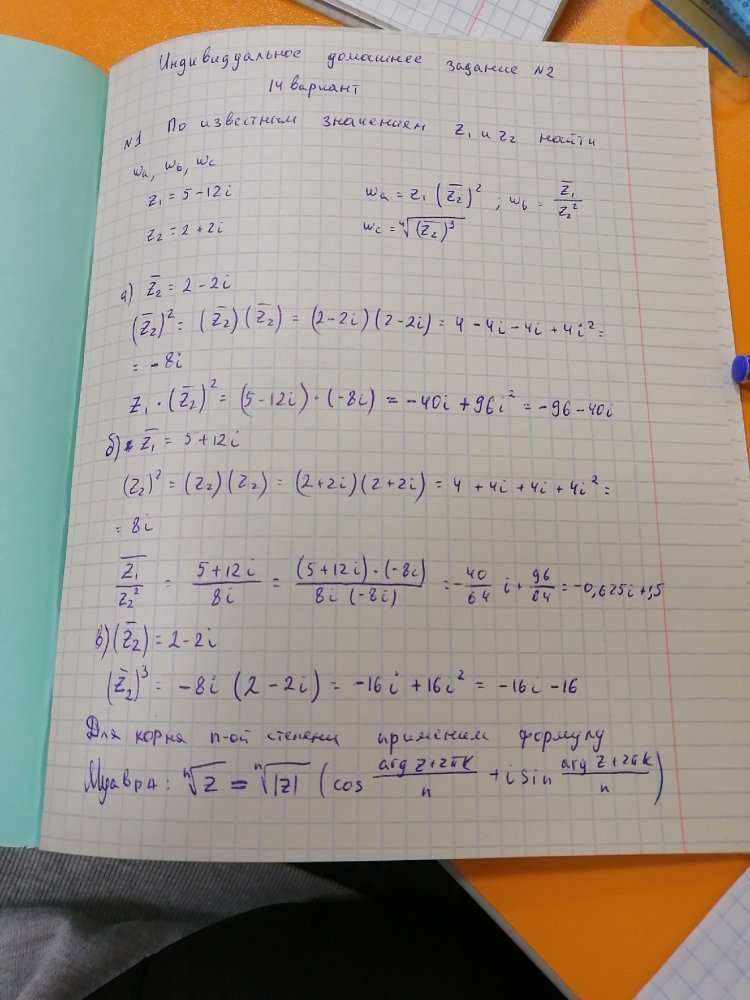 Индивидуальное домашнее задание №2
14 вариант
№1 По известным значениям z₁ и z₂ найти
wₐ, w_b, w_c
z₁ = 5-12i wₐ = z₁ (z̅₂)², w_b = z̅₁/z₂²
z₂ = 2+2i w_c = ⁴√((z̅₂)³)
а) z̅₂ = 2-2i
(z̅₂)² = (z̅₂)(z̅₂) = (2-2i)(2-2i) = 4-4i-4i+4i² =
= -8i
z₁ · (z̅₂)² = (5-12i)·(-8i) = -40i+96i² = -96-40i
б) z̅₁ = 5+12i
(z₂)² = (z₂)(z₂) = (2+2i)(2+2i) = 4+4i+4i+4i² =
= 8i
z̅₁/z₂² = (5+12i)/8i = ((5+12i)·(-8i))/(8i(-8i)) = -40/64 i + 96/64 = -0,625i+1,5
в) (z̅₂) = 2-2i
(z̅₂)³ = -8i (2-2i) = -16i+16i² = -16i-16
Для корня n-ой степени применим формулу
Муавра: ⁿ√z = ⁿ√|z| (cos (arg z+2πk)/n + i sin (arg z+2πk)/n)